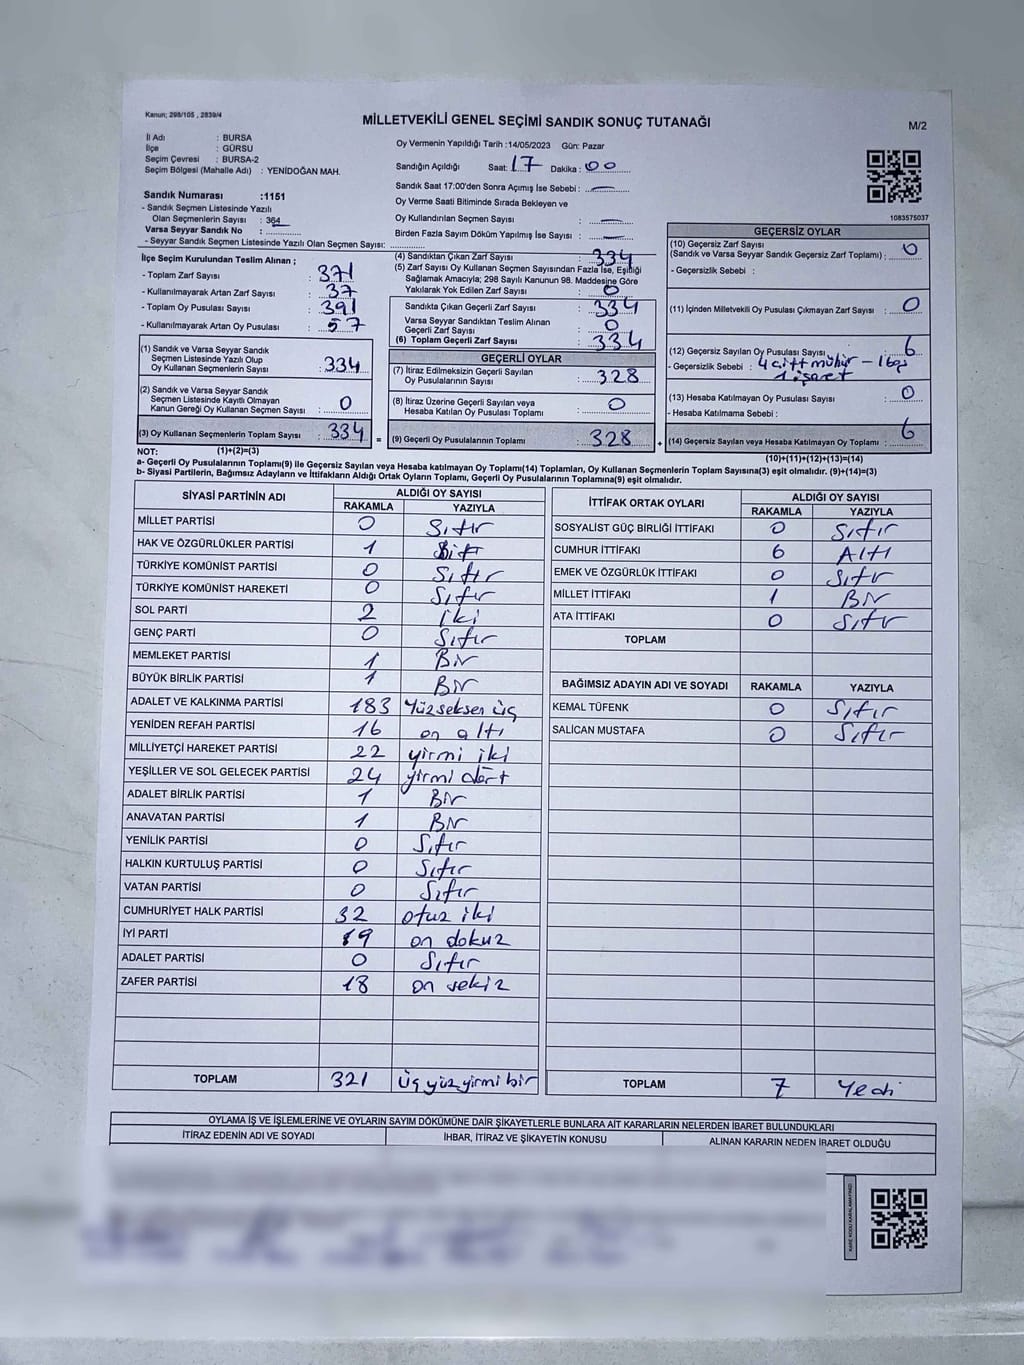 Kanun; 298/105 , 2839/4
MİLLETVEKİLİ GENEL SEÇİMİ SANDIK SONUÇ TUTANAĞI
M/2
İl Adı : BURSA
İlçe : GÜRSU
Seçim Çevresi : BURSA-2
Seçim Bölgesi (Mahalle Adı) : YENİDOĞAN MAH.
Sandık Numarası :1151
- Sandık Seçmen Listesinde Yazılı
Olan Seçmenlerin Sayısı : 364
Varsa Seyyar Sandık No :
- Seyyar Sandık Listesinde Yazılı Olan Seçmen Sayısı:
Oy Vermenin Yapıldığı Tarih :14/05/2023 Gün: Pazar
Sandığın Açıldığı Saat: 17 Dakika : 00
Sandık Saat 17:00'den Sonra Açımış İse Sebebi : —
Oy Verme Saati Bitiminde Sırada Bekleyen ve
Oy Kullandırılan Seçmen Sayısı : —
Birden Fazla Sayım Döküm Yapılmış İse Sayısı : —
1083575037
İlçe Seçim Kurulundan Teslim Alınan ;
- Toplam Zarf Sayısı : 371
- Kullanılmayarak Artan Zarf Sayısı : 37
- Toplam Oy Pusulası Sayısı : 391
- Kullanılmayarak Artan Oy Pusulası : 57
(1) Sandık ve Varsa Seyyar Sandık
Seçmen Listesinde Yazılı Olup
Oy Kullanan Seçmenlerin Sayısı : 334
(2) Sandık ve Varsa Seyyar Sandık
Seçmen Listesinde Kayıtlı Olmayan
Kanun Gereği Oy Kullanan Seçmen Sayısı : 0
(3) Oy Kullanan Seçmenlerin Toplam Sayısı : 334 =
(1)+(2)=(3)
(4) Sandıktan Çıkan Zarf Sayısı : 334
(5) Zarf Sayısı Oy Kullanan Seçmen Sayısından Fazla İse, Eşitliği
Sağlamak Amacıyla; 298 Sayılı Kanunun 98. Maddesine Göre
Yakılarak Yok Edilen Zarf Sayısı : 0
Sandıkta Çıkan Geçerli Zarf Sayısı : 334
Varsa Seyyar Sandıktan Teslim Alınan
Geçerli Zarf Sayısı : 0
(6) Toplam Geçerli Zarf Sayısı : 334
GEÇERLİ OYLAR
(7) İtiraz Edilmeksizin Geçerli Sayılan
Oy Pusulalarının Sayısı : 328
(8) İtiraz Üzerine Geçerli Sayılan veya
Hesaba Katılan Oy Pusulası Toplamı : 0
(9) Geçerli Oy Pusulalarının Toplamı : 328 +
GEÇERSİZ OYLAR
(10) Geçersiz Zarf Sayısı
(Sandık ve Varsa Seyyar Sandık Geçersiz Zarf Toplamı) : 0
- Geçersizlik Sebebi :
(11) İçinden Milletvekili Oy Pusulası Çıkmayan Zarf Sayısı : 0
(12) Geçersiz Sayılan Oy Pusulası Sayısı : 6
- Geçersizlik Sebebi : 4 çift mühür - 1 boş
1 işaret
(13) Hesaba Katılmayan Oy Pusulası Sayısı : 0
- Hesaba Katılmama Sebebi :
(14) Geçersiz Sayılan veya Hesaba Katılmayan Oy Toplamı : 6
(10)+(11)+(12)+(13)=(14)
NOT:
a- Geçerli Oy Pusulalarının Toplamı(9) ile Geçersiz Sayılan veya Hesaba katılmayan Oy Toplamı(14) Toplamları, Oy Kullanan Seçmenlerin Toplam Sayısına(3) eşit olmalıdır. (9)+(14)=(3)
b- Siyasi Partilerin, Bağımsız Adayların ve İttifakların Aldığı Ortak Oyların Toplamı, Geçerli Oy Pusulalarının Toplamına(9) eşit olmalıdır.
SİYASİ PARTİNİN ADI ALDIĞI OY SAYISI
RAKAMLA YAZIYLA
MİLLET PARTİSİ 0 Sıfır
HAK VE ÖZGÜRLÜKLER PARTİSİ 1 Bir
TÜRKİYE KOMÜNİST PARTİSİ 0 Sıfır
TÜRKİYE KOMÜNİST HAREKETİ 0 Sıfır
SOL PARTİ 2 iki
GENÇ PARTİ 0 Sıfır
MEMLEKET PARTİSİ 1 Bir
BÜYÜK BİRLİK PARTİSİ 1 Bir
ADALET VE KALKINMA PARTİSİ 183 Yüzseksen üç
YENİDEN REFAH PARTİSİ 16 on altı
MİLLİYETÇİ HAREKET PARTİSİ 22 yirmi iki
YEŞİLLER VE SOL GELECEK PARTİSİ 24 yirmi dört
ADALET BİRLİK PARTİSİ 1 Bir
ANAVATAN PARTİSİ 1 Bir
YENİLİK PARTİSİ 0 Sıfır
HALKIN KURTULUŞ PARTİSİ 0 Sıfır
VATAN PARTİSİ 0 Sıfır
CUMHURİYET HALK PARTİSİ 32 otuz iki
İYİ PARTİ 19 on dokuz
ADALET PARTİSİ 0 Sıfır
ZAFER PARTİSİ 18 on sekiz
TOPLAM 321 üç yüz yirmi bir
İTTİFAK ORTAK OYLARI ALDIĞI OY SAYISI
RAKAMLA YAZIYLA
SOSYALİST GÜÇ BİRLİĞİ İTTİFAKI 0 Sıfır
CUMHUR İTTİFAKI 6 Altı
EMEK VE ÖZGÜRLÜK İTTİFAKI 0 Sıfır
MİLLET İTTİFAKI 1 Bir
ATA İTTİFAKI 0 Sıfır
TOPLAM
BAĞIMSIZ ADAYIN ADI VE SOYADI RAKAMLA YAZIYLA
KEMAL TÜFENK 0 Sıfır
SALİCAN MUSTAFA 0 Sıfır
TOPLAM 7 Yedi
OYLAMA İŞ VE İŞLEMLERİNE VE OYLARIN SAYIM DÖKÜMÜNE DAİR ŞİKAYETLERLE BUNLARA AİT KARARLARIN NELERDEN İBARET BULUNDUKLARI
İTİRAZ EDENİN ADI VE SOYADI İHBAR, İTİRAZ VE ŞİKAYETİN KONUSU ALINAN KARARIN NEDEN İBARET OLDUĞU
KARE KODU KARALAMAYINIZ!